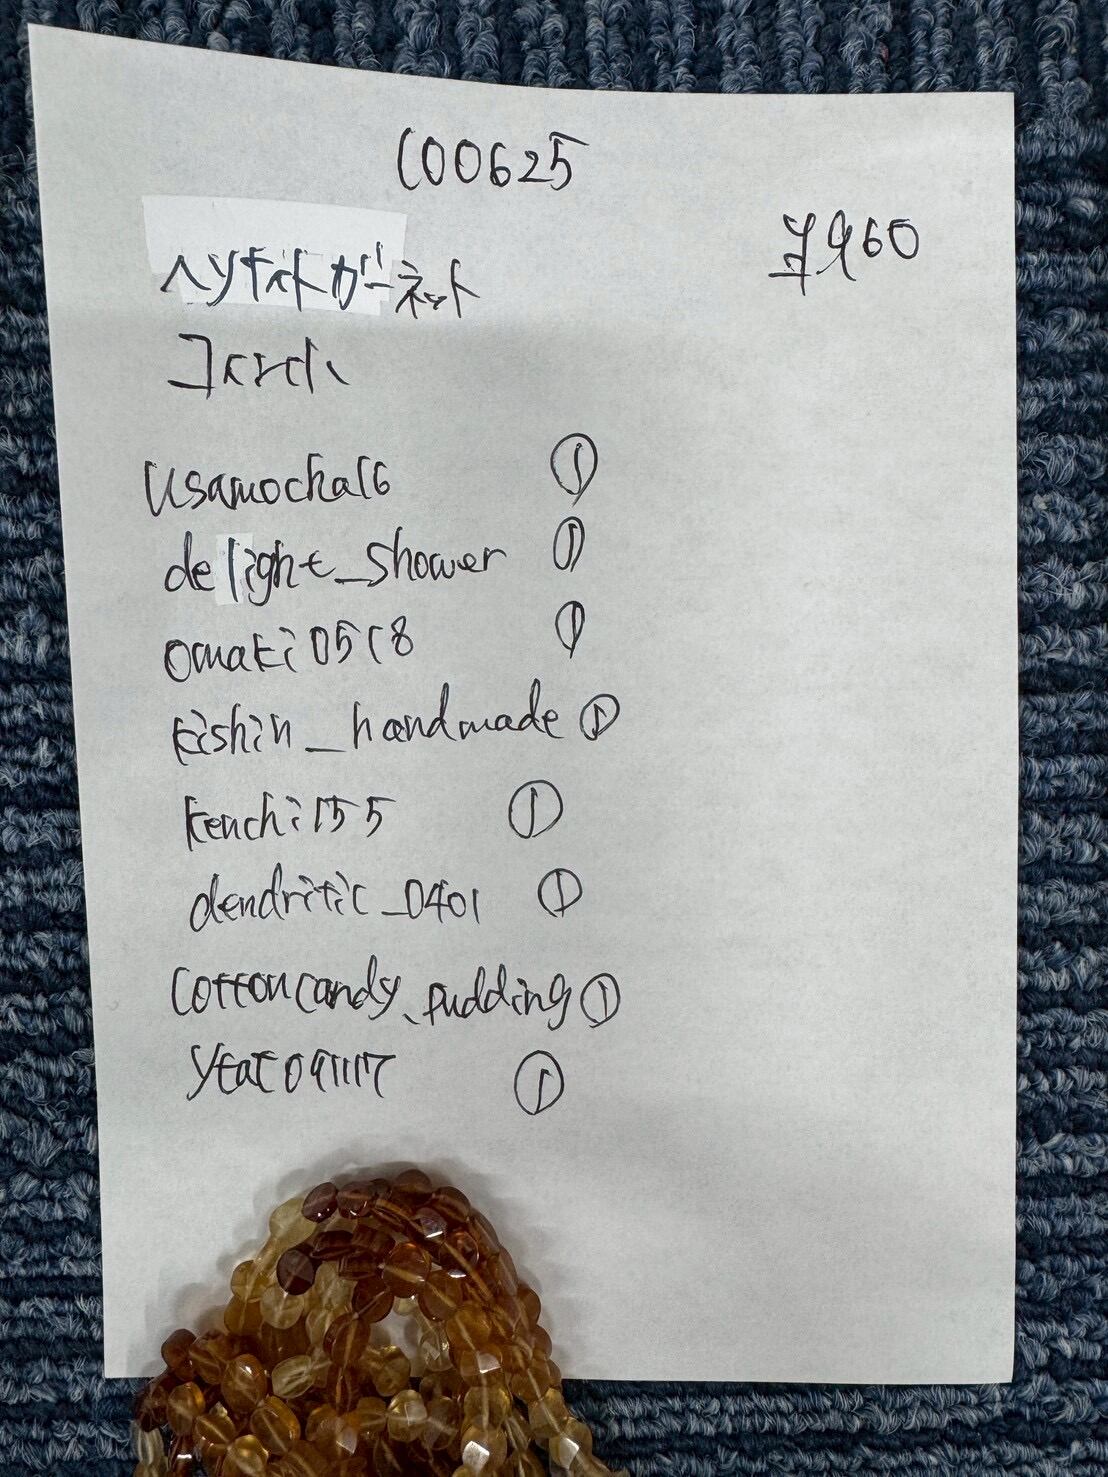 C00625
¥960
ヘソナイトガーネット
コイン小
usamocha16 ①
delight_shower ①
omaki0518 ①
kishin_handmade ①
kenchi155 ①
dendritic_0401 ①
cottoncandy_pudding ①
①